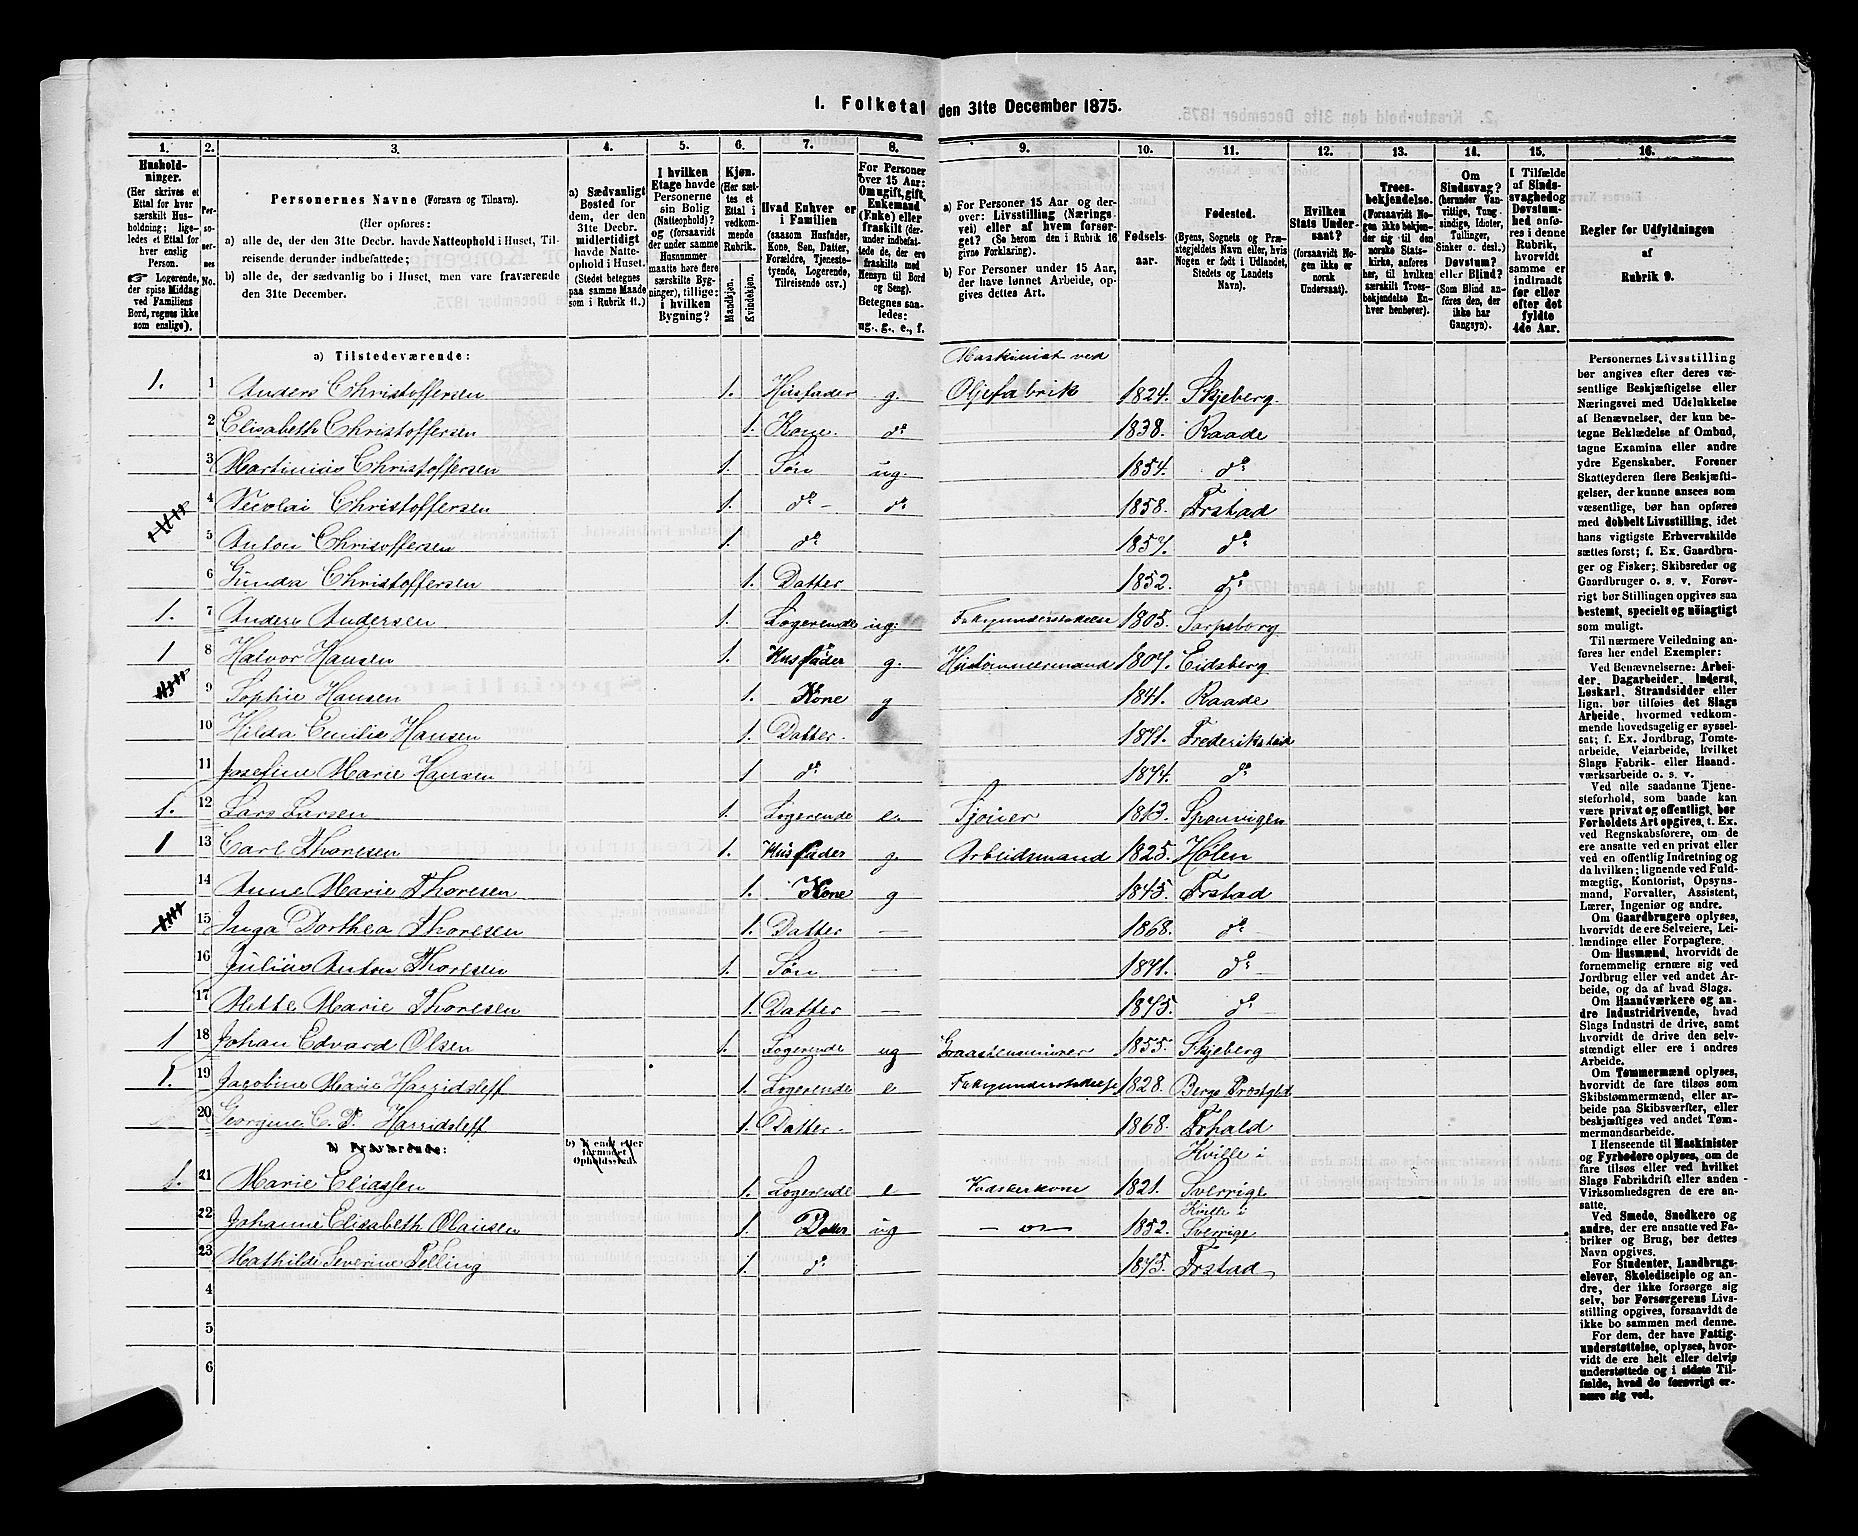 1. Folketal den 31te December 1875.
1. 2. 3. 4. 5. 6. 7. 8. 9. 10. 11. 12. 13. 14. 15. 16.
Hushold-
ninger.
(Her skrives et
Ettal for hver
særskilt Hus-
holdning; lige-
ledes et Ettal for
hver enslig
Person.
☞ Logerende,
der spise Middag
ved Familiens
Bord, regnes ikke
som enslige).
Per-
soner-
nes
No.
Personernes Navne (Fornavn og Tilnavn).
(Her opføres:
a) alle de, der den 31te Decbr. havde Natteophold i Huset, Til-
reisende derunder indbefattede;
b) alle de, der sædvanlig bo i Huset, men vare fraværende
den 31te December.
a) Sædvanligt
Bosted for
dem, der den
31te Decbr.
midlertidigt
havde Natte-
ophold i Huset.
(Stedet betegnes
paa samme Maade
som i Rubrik 11.)
I hvilken
Etage havde
Personerne
sin Bolig
(Natteophold)?
og (forsaavidt
der under samme
Husnummer
maatte høre flere
særskilte Byg-
ninger), tillige:
i hvilken
Bygning?
Kjøn.
(Her sæt-
tes et
Ettal i
vedkom-
mende
Rubrik.
Mandkjøn.
Kvindekjøn.
Hvad Enhver er
i Familien
(saasom Husfader,
Kone, Søn, Datter,
Forældre, Tjeneste-
tyende, Logerende,
Tilreisende osv.)
For Personer
over 15 Aar:
Om ugift, gift,
Enkemand
(Enke) eller
fraskilt
Betegnes saa-
ledes:
ug., g., e., f.
a) For Personer 15 Aar og der-
over: Livsstilling (Nærings-
vei) eller af hvem forsør-
get? (Se herom den i Rubrik 16
givne Forklaring).
b) For Personer under 15 Aar,
der have lønnet Arbeide, op-
gives dettes Art.
Fødsels-
aar.
Fødested.
(Byens, Sognets og Præ-
stegjeldets Navn eller, hvis
Nogen er født i Udlandet,
Stedets og Landets
Navn).
Hvilken
Stats Under-
saat?
(forsaavidt No-
gen ikke er
norsk
Undersaat).
Troes-
bekjendelse.
(Forsaavidt No-
gen ikke bekjen-
der sig til den
norske Stats-
kirke, anføres
her, til hvilken
særskilt Troes-
bekjendelse En-
hver henhører).
Om
Sindssvag?
(herunder Van-
vittige, Tung-
sindige, Idioter,
Tullinger,
Sinker o. desl.)
Døvstum?
eller Blind?
(Som Blind an-
føres den, der
ikke har
Gangsyn).
I Tilfælde
af Sinds-
svaghed og
Døvstum-
hed anfø-
res i denne
Rubrik,
hvorvidt
samme er
indtraadt
før eller
efter det
fyldte
4de Aar.
Regler for Udfyldningen
af
Rubrik 9.
a) Tilstedeværende:
Maskinist ved
1. 1 Anders Christoffersen 1. Husfader g. Oljefabrik 1824. Skjeberg
2 Elisabeth Christoffersen 1. Kone. do 1838. Raade
3 Martinius Christoffersen 1. Søn ug. 1854. do
4 Nicolai Christoffersen 1. do - do 1858. Frstad
5 Anton Chrisoffersen 1. do 1857. do
6 Gunda Christoffersen 1. Datter 1852. do
1. 7 Anders Andersen 1. Logerende ug: Fattigunderstøttelse 1805. Sarpsborg
1 8 Halvor Hansen 1. Husfader g. Hustømmermand 1807. Eidsberg
9 Sophie Hansen 1. Kone g 1841. Raade
10 Hilda Emilie Hansen 1. Datter. 1871. Frederikstad
11 Josefine Marie Hansen 1 do 1874. do
1. 12 Lars Larsen 1. Logerende e. Sjøuer 1813. Sponvigen
1 13 Carl Thoresen 1. Husfader g. Arbeidsmand 1825. Hølen
14 Anne Marie Thoresen 1. Kone g 1845. Frstad
15 Inga Dorthea Thoresen 1. Datter — 1868. do
16 Julius Anton Thoresen 1. Søn — 1871. do
17 Mette Marie Thoresen 1. Datter — 1875. do
1 18 Johan Edvard Olsen 1. Logerende ug Graastensminer 1855. Skjeberg
1. 19 Jacobine Marie Harridsleff 1. Logerende e Fattigunderstøttelse 1828. Berge Præstgjeld
20 Georgine C. P. Harridsleff 1. Datter. 1868. Frhald
b) Fraværende: b) Kjendt eller
formodet
Opholdssted.
Kville i
1. 21 Marie Eliassen 1. Logerende e Vadskerkone 1821. Sverrige
Kville i
22 Johanne Elisabeth Olausen 1. Datter ug — or — 1852. Sverrige
23 Mathilde Severine Telling 1. do 1875. Frstad
4
5
6
Personernes Livsstilling
bør angives efter deres væ-
sentlige Beskjæftigelse eller
Næringsvei med Udelukkelse
af Benævnelser, der kun be-
tegne Beklædelse af Ombud,
tagne Examina eller andre
ydre Egenskaber. Forener
Skatteyderen flere Beskjæfti-
gelser, der kunne ansees som
væsentlige, bør han opføres
med dobbelt Livsstilling, idet
hans vigtigste Erhvervskilde
sættes først; f. Ex. Gaardbru-
ger og Fisker; Skibsreder og
Gaardbruger o. s. v. Forøv-
rigt bør Stillingen opgives saa
bestemt, specielt og nøiagtigt
som muligt.
Til nærmere Veiledning an-
føres her endel Exempler:
Ved Benævnelserne: Arbei-
der, Dagarbeider, Inderst,
Løskarl, Strandsidder eller
lign. bør tilføies det Slags
Arbeide, hvormed vedkom-
mende hovedsagelig er syssel-
sat; f. Ex. Jordbrug, Tomte-
arbeide, Veiarbeide, hvilket
Slags Fabrik- eller Haand-
værksarbeide o. s. v.
Ved alle saadanne Tjene-
steforhold, som baade kan
være privat og offentligt, bør
Forholdets Art opgives, t. Ex.
ved Regnskabsførere, om de
ere ansatte ved en privat eller
ved en offentlig Indretning og
da hvilken; lignende ved Fuld-
mægtig, Kontorist, Opsyns-
mand, Forvalter, Assistent,
Lærer, Ingeniør og andre.
Om Gaardbrugere oplyses,
hvorvidt de ere Selveiere, Lei-
lændinge eller Forpagtere.
Om Husmænd, hvorvidt de
fornemmelig ernære sig ved
Jordbrug eller ved andet Ar-
beide, og da af hvad Slags.
Om Haandværkere og an-
dre Industridrivende, hvad
Slags Industri de drive, samt
hvorvidt de drive den selv-
stændigt eller ere i andres
Arbeide.
Om Tømmermænd oplyses,
hvorvidt de fare tilsøs som
Skibstømmermænd, eller ar-
beide paa Skibsværfter, eller
beskjæftiges ved andet Tøm-
mermandsarbeide.
I Henseende til Maskinister
og Fyrbødere oplyses, om de
fare tilsøs eller ved hvilket
Slags Fabrikdrift eller anden
Virksomhedsgren de ere an-
satte.
Ved Smede, Snedkere og
andre, der ere ansatte ved Fa-
briker og Brug, bør dettes
Navn opgives.
For Studenter, Landbrugs-
elever, Skoledisciple og an-
dre, der ikke forsørge sig
selv, bør Forsørgerens Livs-
stilling opgives, forsaavidt de
ikke bo sammen med denne.
For dem, der have Fattig-
understøttelse, oplyses, hvor-
vidt de ere helt eller delvis
understøttede og i sidste Til-
fælde, hvad de forøvrigt er-
nære sig ved.